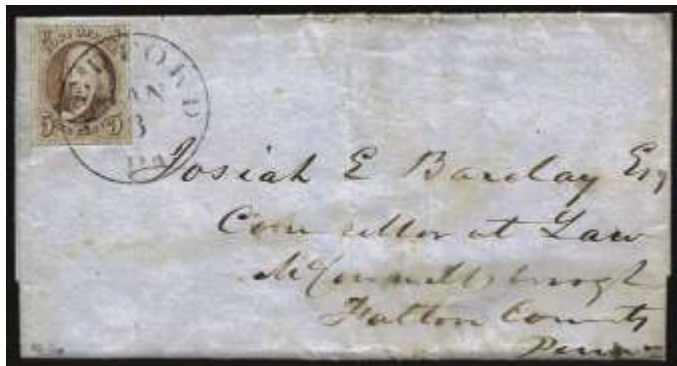 POST OFFICE
5 5
JAN
3
Pa
Josiah E Barclay Esq
Counsellor at Law
McConnellsburgh
Fulton County
Penna